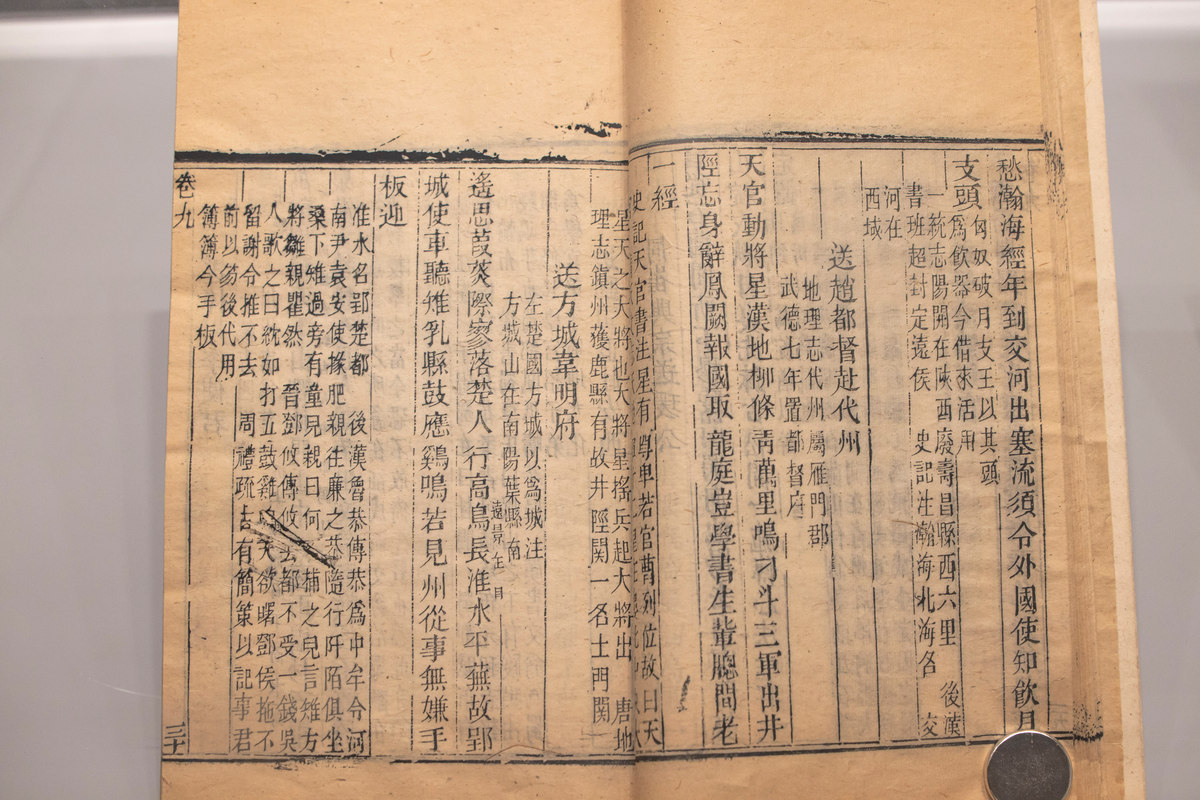 愁瀚海經年到交河出塞流須令外國使知飲月
支頭
匈奴破月支王以其頭
爲飲器今借來活用
一統志陽開在陝西廢壽昌縣西六里　後漢
書班超封定遠侯　史記注瀚海北海名　交
河在
西域
送趙都督赴代州
地理志代州屬雁門郡
武德七年置都督府
天官動將星漢地柳條青萬里鳴刁斗三軍出井
陘忘身辭鳳闕報國取龍庭豈學書生輩牕間老
一經
史記天官書注星有尊卑若官曹列位故曰天
星天之大將也大將星搖兵起大將出　唐地
理志鎮州獲鹿縣有故井陘関一名土門関
送方城韋明府
左楚國方城以爲城注
方城山在南陽葉縣南
遙思葭菼際寥落楚人行高鳥長淮水平蕪故郢
遠景在目
城使車聽雉乳縣鼓應鷄鳴若見州從事無嫌手
板迎
淮水名郢楚都　後漢魯恭傳恭爲中牟令河
南尹袁安使掾肥親往廉之恭隨行阡陌俱坐
桑下雉過旁有童兒親曰何不捕之兒言雉方
將雛親瞿然　晉鄧攸傳攸去都不受一錢吳
人歌之曰紞如打五鼓雞鳴天欲曙鄧侯拖不
留謝令推不去　周禮疏古有簡策以記事君
前以笏後代用
簿簿今手板
卷九
三十